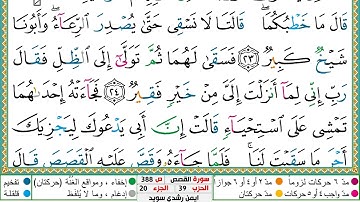 قَالَ مَا خَطْبُكُمَا ۖ قَالَتَا لَا نَسْقِى حَتَّىٰ يُصْدِرَ ٱلرِّعَآءُ ۖ وَأَبُونَا
شَيْخٌ كَبِيرٌ ﴿٢٣﴾ فَسَقَىٰ لَهُمَا ثُمَّ تَوَلَّىٰٓ إِلَى ٱلظِّلِّ فَقَالَ
رَبِّ إِنِّى لِمَآ أَنزَلْتَ إِلَىَّ مِنْ خَيْرٍ فَقِيرٌ ﴿٢٤﴾ فَجَآءَتْهُ إِحْدَىٰهُمَا
تَمْشِى عَلَى ٱسْتِحْيَآءٍ قَالَتْ إِنَّ أَبِى يَدْعُوكَ لِيَجْزِيَكَ
أَجْرَ مَا سَقَيْتَ لَنَا ۚ فَلَمَّا جَآءَهُۥ وَقَصَّ عَلَيْهِ ٱلْقَصَصَ قَالَ
مدّ ٦ حركات لزوما مدّ ٢ أو ٤ أو ٦ جوازا سورة القصص ص 388 إخفاء، ومواقع الغنّة (حركتان) تفخيم
مدّ واجب ٤ أو ٥ حركات مدّ حركتان الحزب 39 الجزء 20 إدغام، وما لا يُلفَظ قلقلة
أيمن رشدي سويد